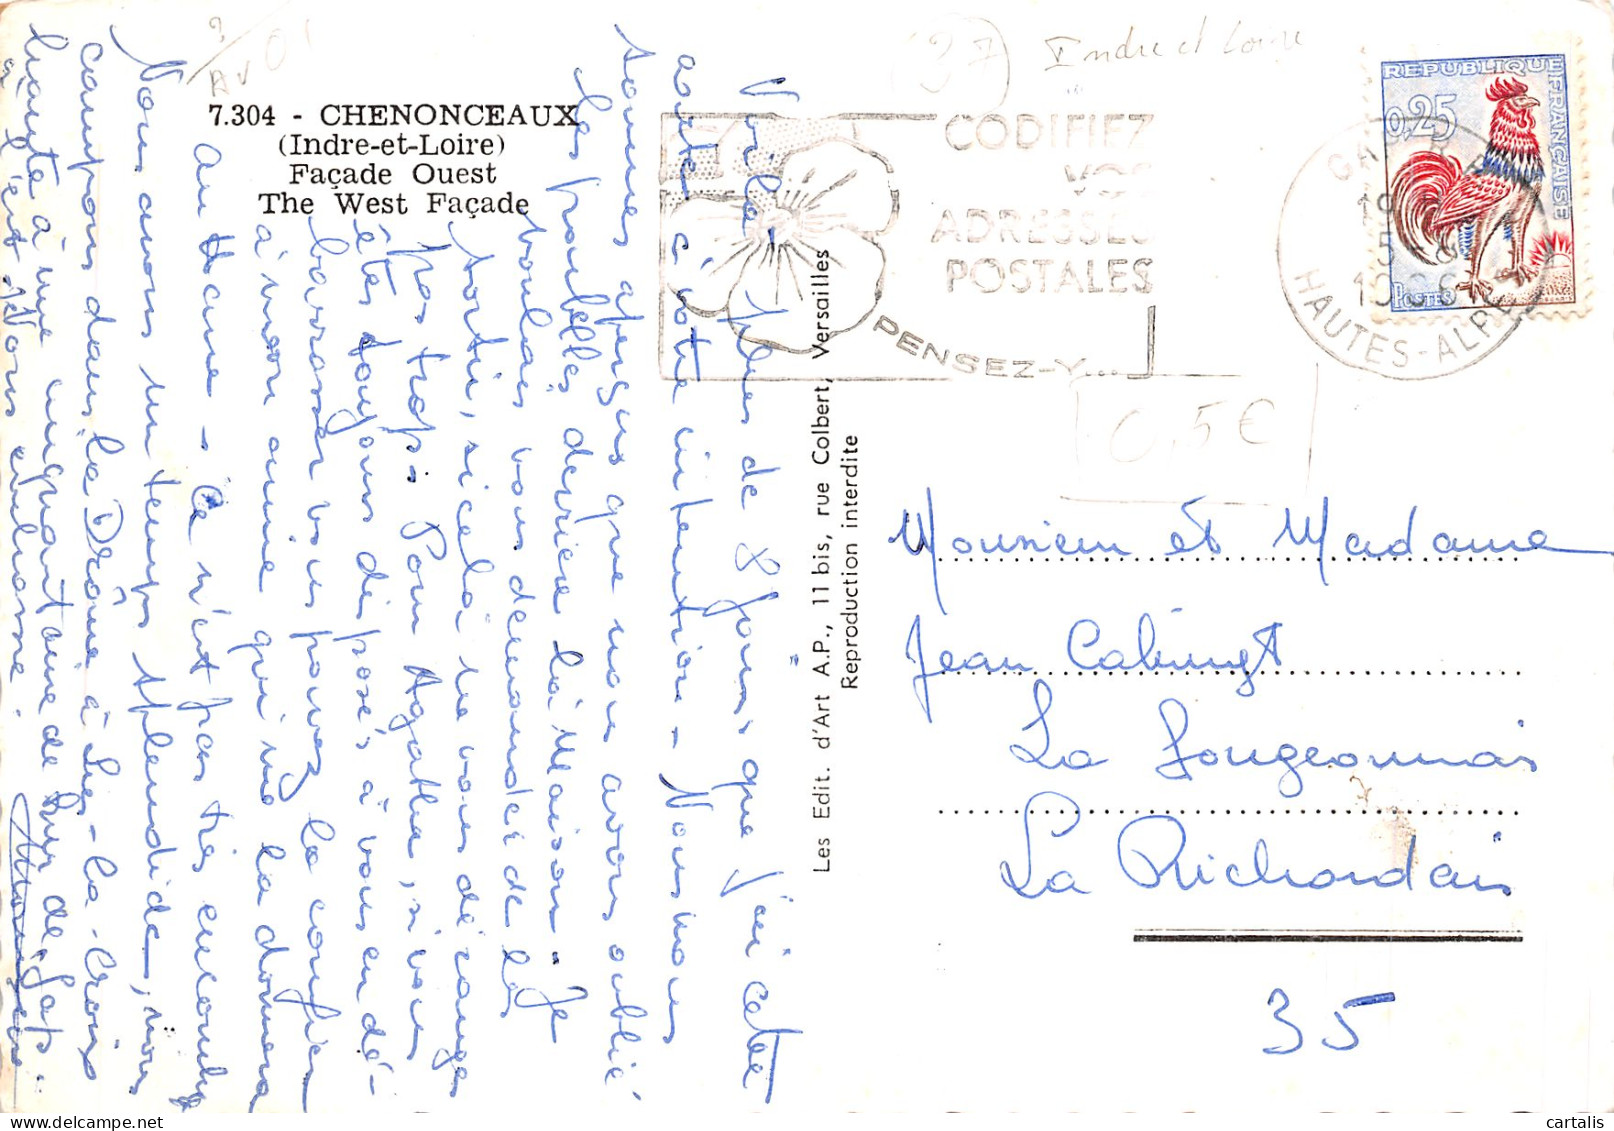 (37) Indre et Loire
7.304 - CHENONCEAUX
(Indre-et-Loire)
Façade Ouest
The West Façade
CODIFIEZ
VOS
ADRESSES
POSTALES
PENSEZ-Y...
HAUTES-ALPES
REPUBLIQUE FRANÇAISE
0,25
POSTES
0,5€
Voilà plus de 8 jours que j'ai cette
carte à votre intention - Nous nous
sommes aperçus que nous avons oublié
les poubelles derrière la Maison - Je
voulais vous demander de les
sortir, si cela ne vous dérange
pas trop. Pour Agathe, si vous
êtes toujours disposés à vous en dé-
barrasser vous pouvez la confier
à mon amie qui me la donnera
au Home - Ce n'est pas très
Nous avons un temps splendide, nous
campons dans la Drôme à Lus-la-Croix
haute à une cinquantaine de km de Gap.
Les Edit. d'Art A.P., 11 bis, rue Colbert, Versailles
Reproduction interdite
Monsieur et Madame
Jean
La
La Richardais
35
cartalis